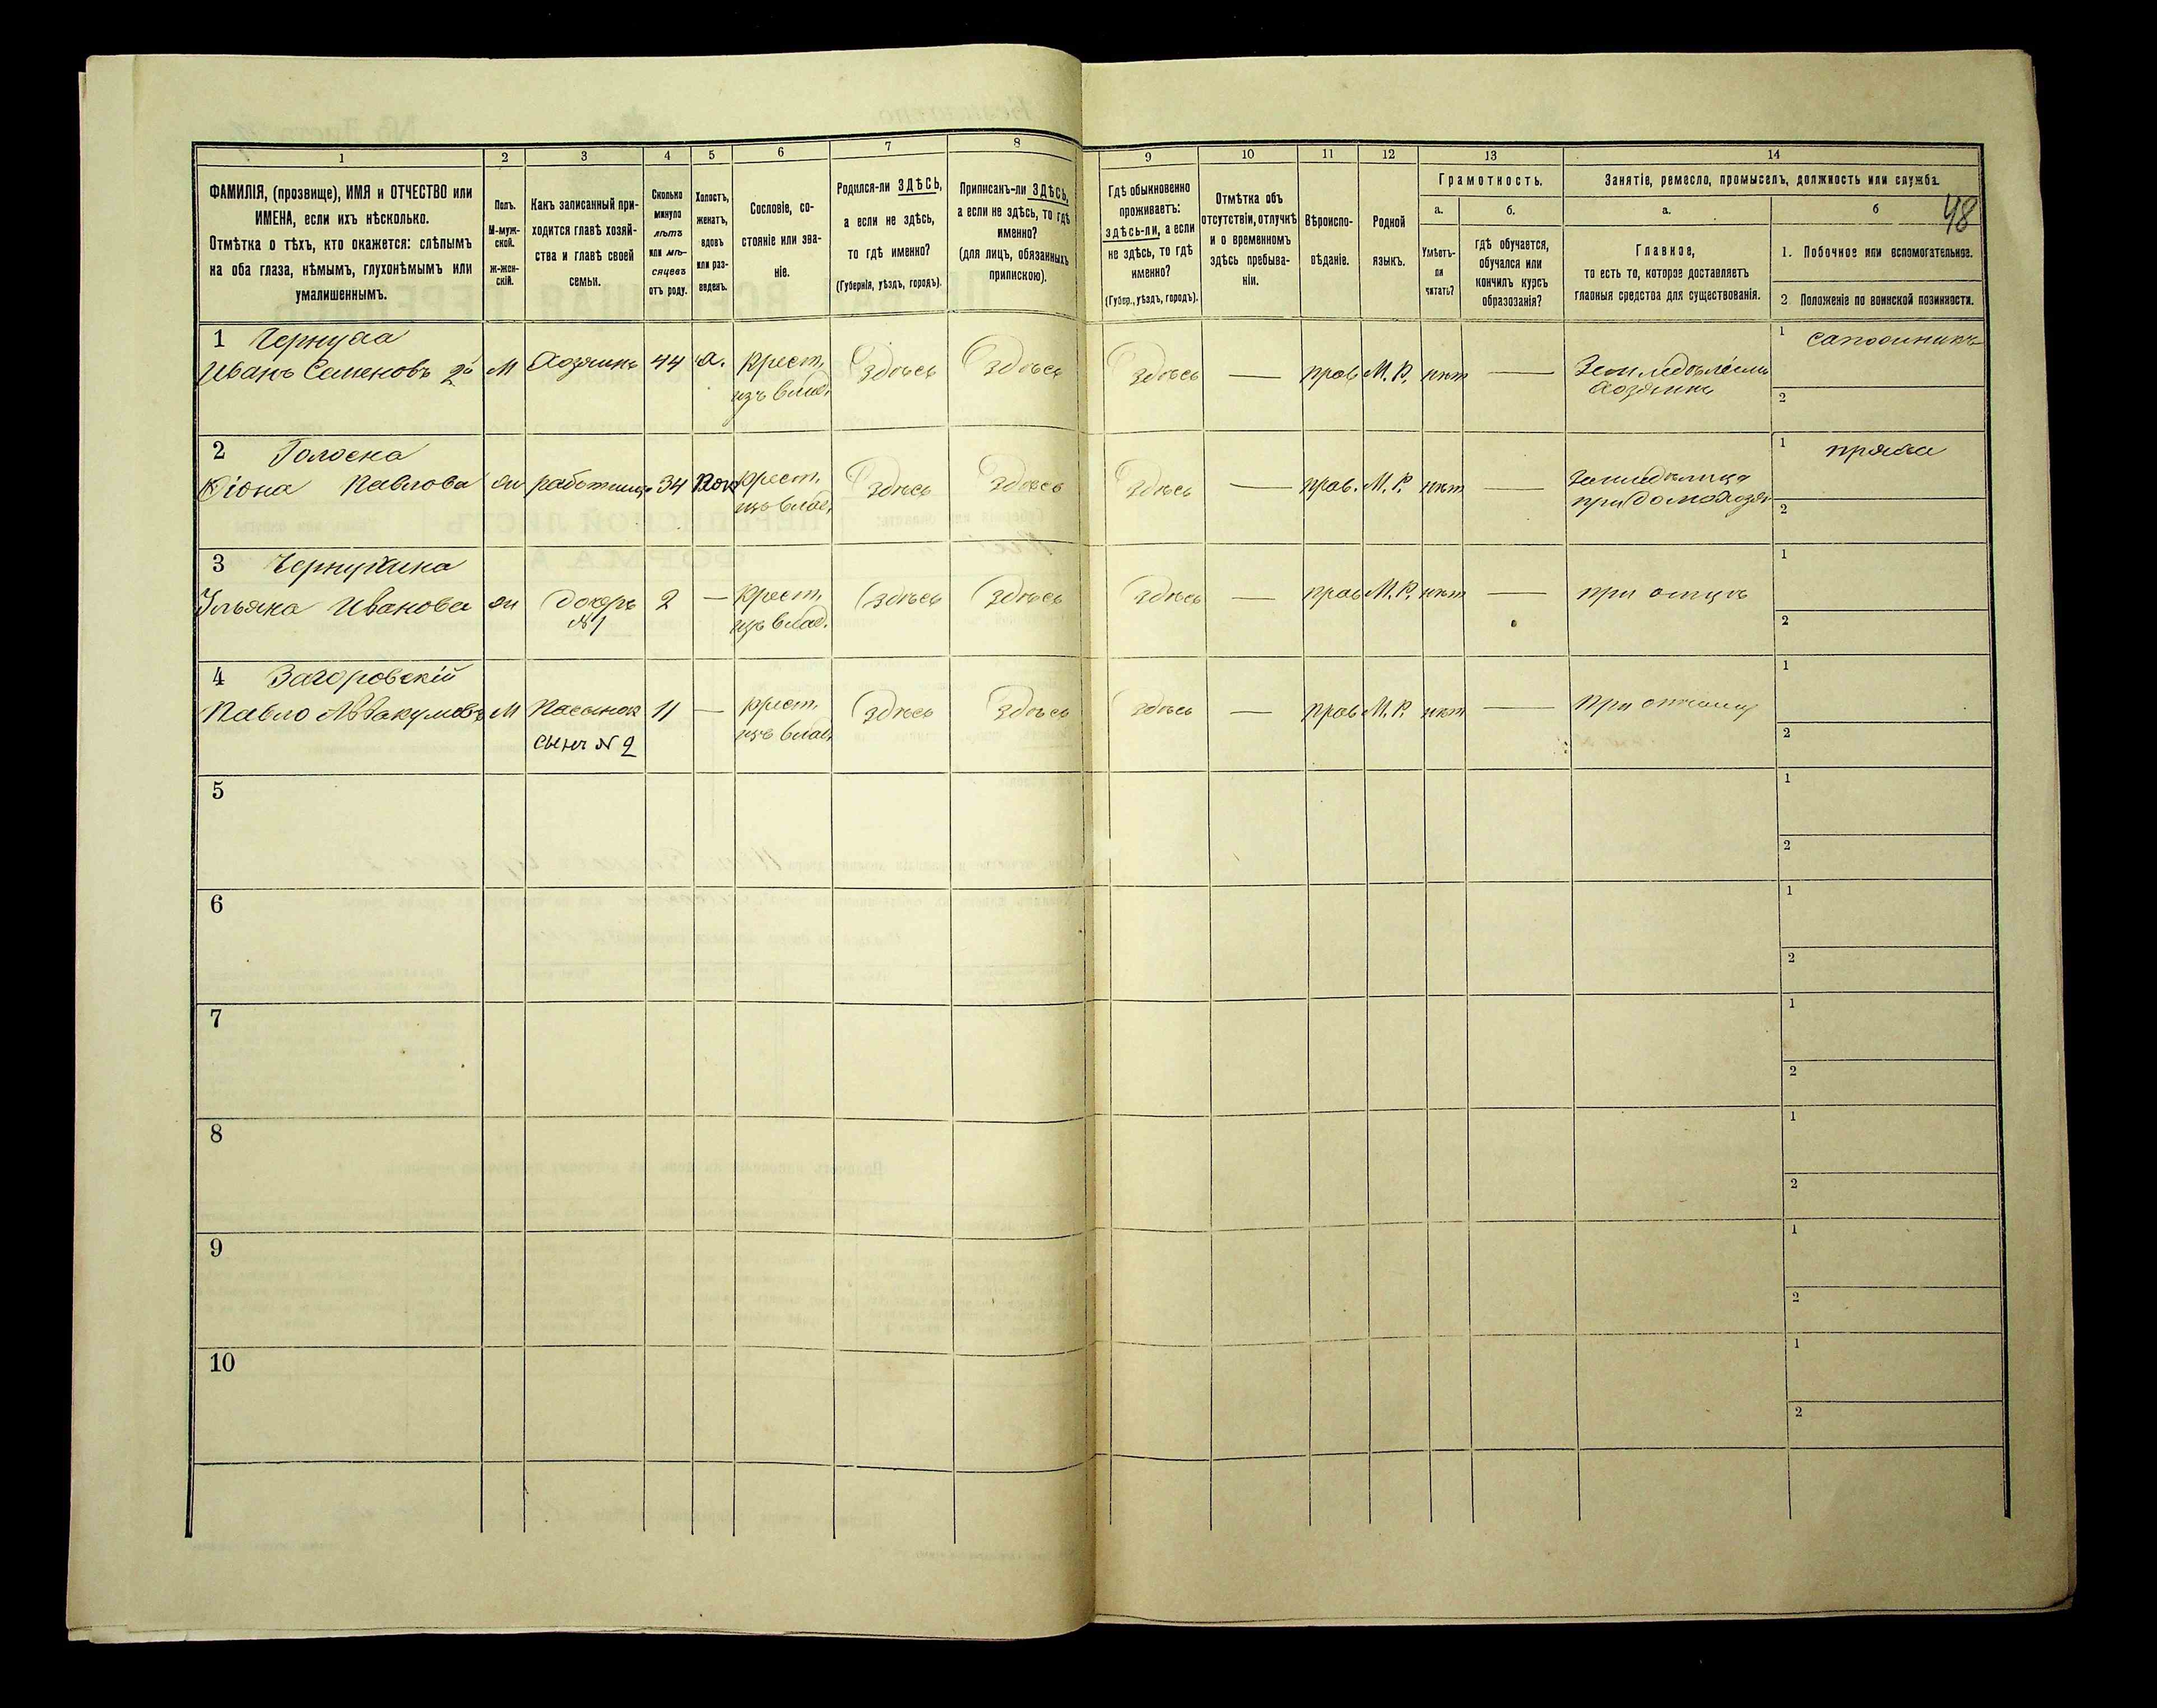 1 2 3 4 5 6 7 8 9 10 11 12 13 14
ФАМИЛІЯ, (прозвище), ИМЯ и ОТЧЕСТВО или
ИМЕНА, если ихъ нѣсколько.
Отмѣтка о тѣхъ, кто окажется: слѣпымъ
на оба глаза, нѣмымъ, глухонѣмымъ или
умалишеннымъ.
Полъ.
М-муж-
ской.
ж-жен-
скій.
Какъ записанный при-
ходится главѣ хозяй-
ства и главѣ своей
семьи.
Сколько
минуло
лѣтъ
или мѣ-
сяцевъ
отъ роду.
Холостъ,
женатъ,
вдовъ
или раз-
веденъ.
Сословіе, со-
стояніе или зва-
ніе.
Родился-ли ЗДѢСЬ,
а если не здѣсь,
то гдѣ именно?
(Губернія, уѣздъ, городъ).
Приписанъ-ли ЗДѢСЬ,
а если не здѣсь, то гдѣ
именно?
(для лицъ, обязанныхъ
припискою).
Гдѣ обыкновенно
проживаетъ:
здѣсь-ли, а если
не здѣсь, то гдѣ
именно?
(Губер., уѣздъ, городъ).
Отмѣтка объ
отсутствіи, отлучкѣ
и о временномъ
здѣсь пребыва-
ніи.
Вѣроиспо-
вѣданіе.
Родной
языкъ.
Грамотность.
а.
Умѣетъ-
ли
читать?
б.
гдѣ обучается,
обучался или
кончилъ курсъ
образованія?
Занятіе, ремесло, промыселъ, должность или служба.
48
а.
Главное,
то есть то, которое доставляетъ
главныя средства для существованія.
б
1. Побочное или вспомогательное.
2 Положеніе по воинской повинности.
1 Чернуха
Иванъ Семеновъ 2й М Хозяинъ 44 х. крест. здѣсь здѣсь здѣсь — прав М. Р. нѣт —
изъ влад.
Хозяинъ
1 сапожникъ
2
2 Голоена
Павлова жн работница 34 крест. здѣсь здѣсь здѣсь — прав. М. Р. нѣт —
изъ влад.
1 пряха
2
3 Чернухина
Ульяна Иванова жн дочерь 2 — крест. здѣсь здѣсь здѣсь — прав М. Р. нѣт — при отцѣ
№ 1 изъ влад.
1
2
4 Загоровскій
Павло Аввакумовъ М Пасынок 11 — крест. здѣсь здѣсь здѣсь — прав М. Р. нѣт — при отчиму
сынъ № 2 изъ влад.
1
2
5 1
2
6 1
2
7 1
2
8 1
2
9 1
2
10 1
2